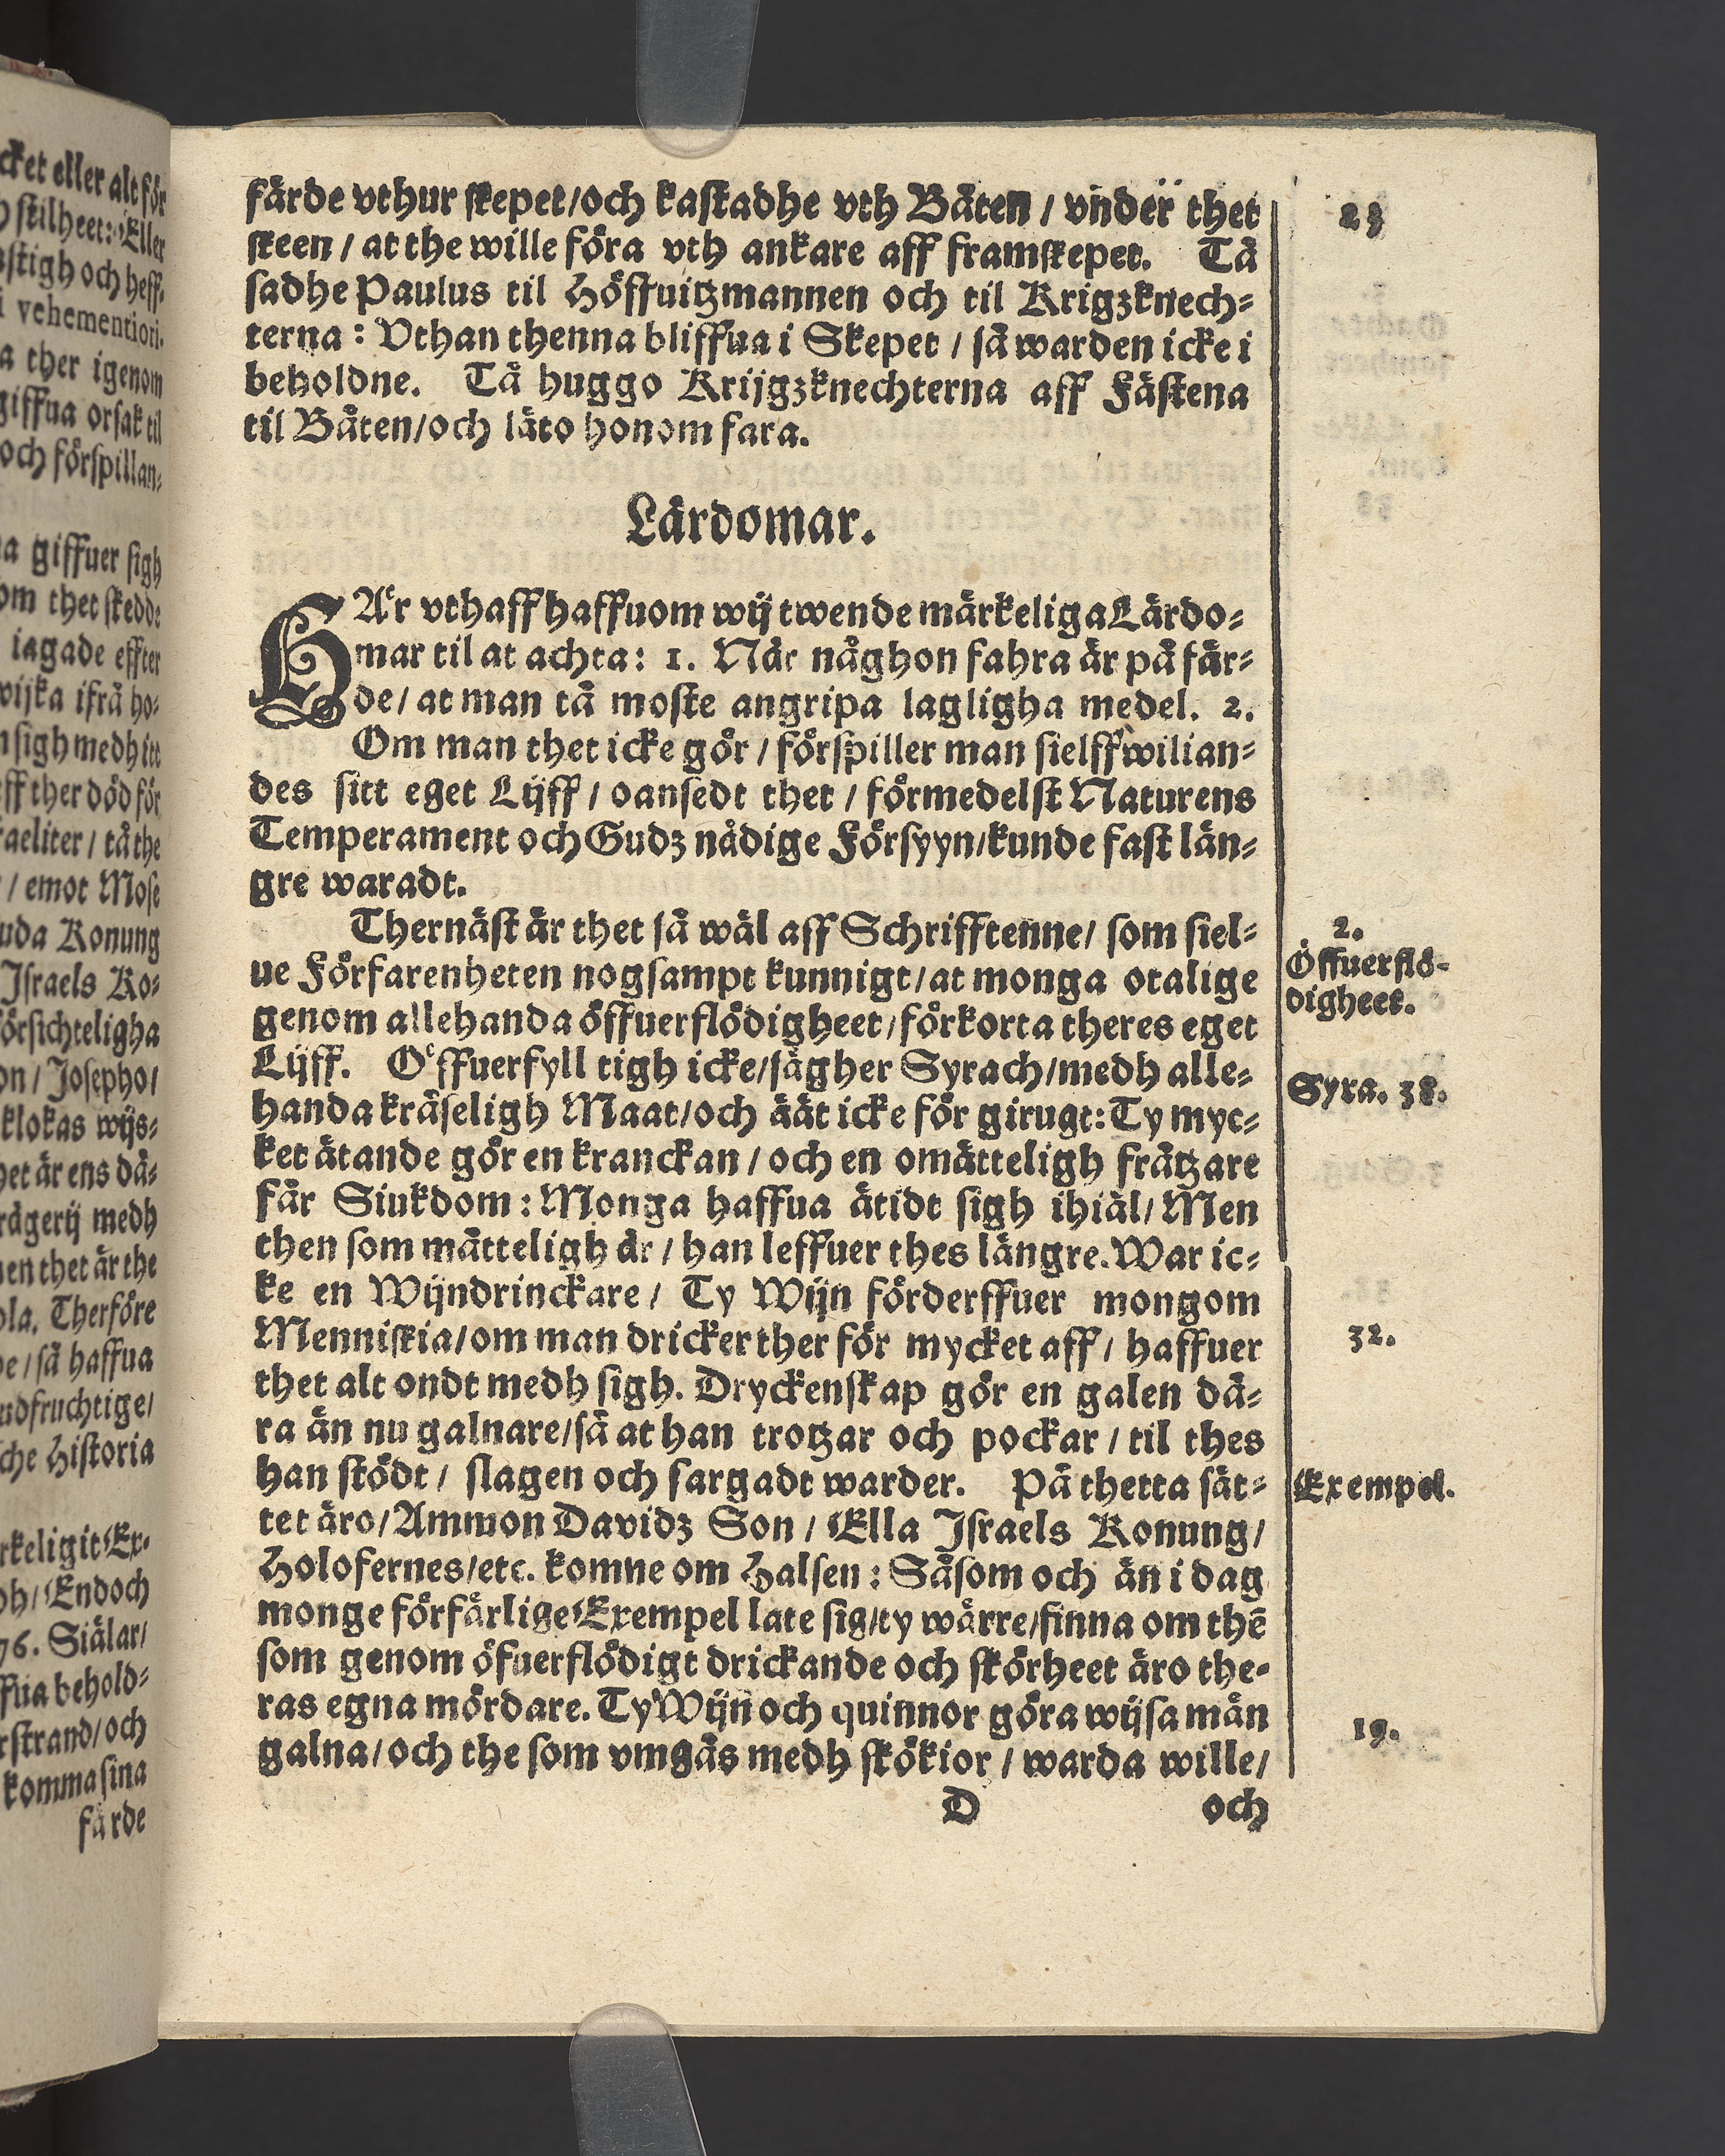 cket eller alt för
stilheet: Eller
stigh och heff-
i vehementiori.
a ther igenom
giffua orsak til
och förspillan-
a giffuer sigh
om thet skedde
iagade effter
wijka ifrå ho-
n sigh medh itt
eff ther död för
raeliter / tå the
/ emot Mose
uda Konung
Israels Ko-
örsichteligha
on / Josepho /
klokas wijs-
het är ens dä-
rägerij medh
en thet är the
ola. Therföre
de / så haffua
udfruchtige /
che Historia
rkeligit Ex-
oh / Endoch
76. Siälar /
ffua behold-
rstrand / och
komma sina
färde
färde vthur skepet / och kastadhe vth Båten / vnder thet
skeen / at the wille föra vth ankare aff framskepet. Tå
sadhe Paulus til Höffuitzmannen och til Krigzknech-
terna : Vthan thenna bliffua i Skepet / så warden icke i
beholdne. Tå huggo Krijgzknechterna aff Fästena
til Båten / och läto honom fara.
Lärdomar.
HAͤr vthaff haffuom wij twende märkeliga Lärdo-
mar til at achta : 1. När någhon fahra är på fär-
de / at man tå moste angripa lagligha medel. 2.
Om man thet icke gör / förspiller man sielffwilian-
des sitt eget Lijff / oansedt thet / förmedelst Naturens
Temperament och Gudz nådige Försyyn / kunde fast län-
gre waradt.
Thernäst är thet så wäl aff Schrifftenne / som siel-
ue Förfarenheten nogsampt kunnigt / at monga otalige
genom allehanda öffuerflödigheet / förkorta theres eget
Lijff. Oͤffuerfyll tigh icke / sägher Syrach / medh alle-
handa kräseligh Maat / och äät icke för girugt : Ty myc-
ket ätande gör en kranckan / och en omätteligh frätzare
får Siukdom : Monga haffua ätidt sigh ihiäl / Men
then som mätteligh är / han leffuer thes längre. War ic-
ke en Wijndrinckare / Ty Wijn förderffuer mongom
Menniskia / om man dricker ther för mycket aff / haffuer
thet alt ondt medh sigh. Dryckenskap gör en galen dä-
ra än nu galnare / så at han trotzar och pockar / til thes
han stödt / slagen och sargadt warder. På thetta sät-
tet äro / Ammon Davidz Son / Ella Israels Konung /
Holofernes / etc. komne om Halsen : Såsom och än i dag
monge förfärlige Exempel late sig / ty wärre / finna om thē
som genom öfuerflödigt drickande och skörheet äro the-
ras egna mördare. Ty Wijn och quinnor göra wijsa män
galna / och the som vmgås medh skökior / warda wille /
D och
2.
Öffuerflö-
digheet.
Syra. 38.
32.
Exempel.
19.